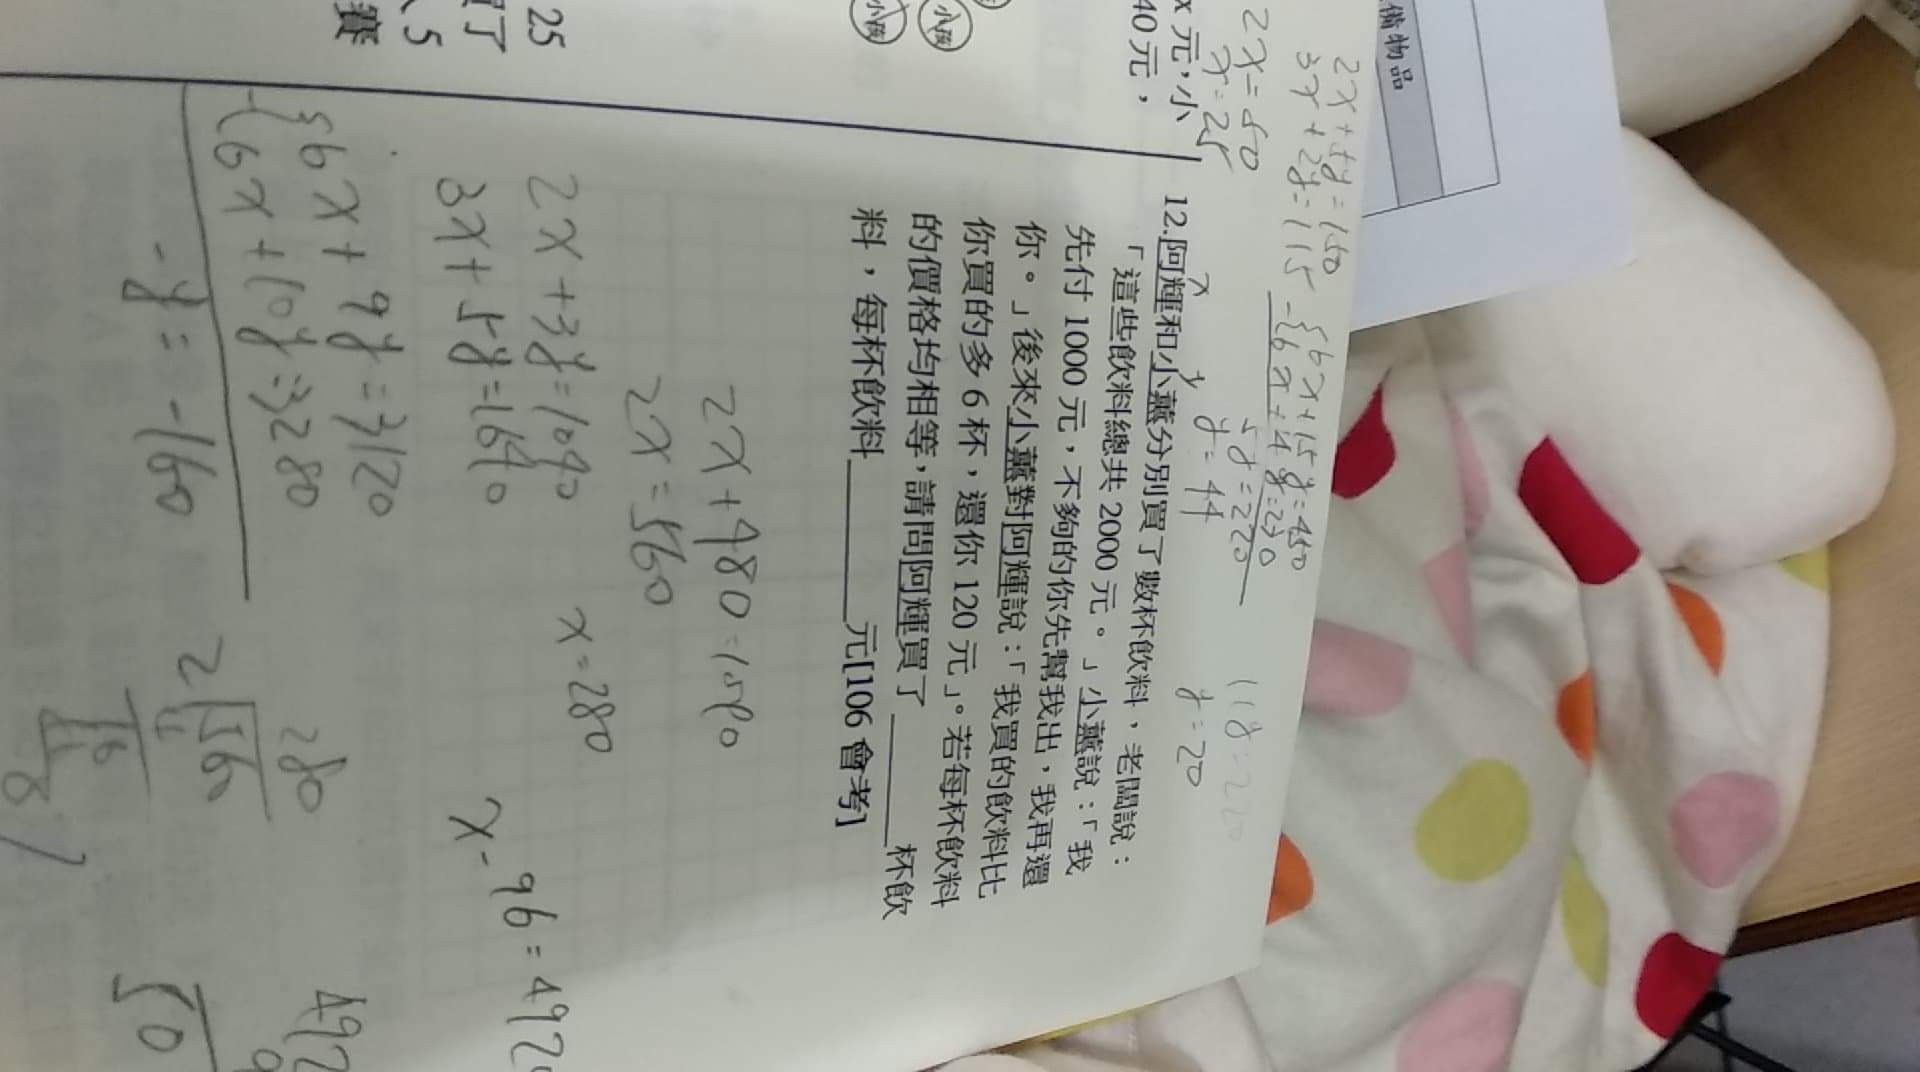 備物品
2x+5y=150
3x+2y=115
{6x+15y=450
-{6x+4y=230
11y=220
y=20
2x=50
x=25
x元,小
40元,
小孩
小孩
25
了
5
賽
12.阿輝和小薰分別買了數杯飲料,老闆說:
x
y
「這些飲料總共 2000 元。」小薰說:「我
先付 1000 元,不夠的你先幫我出,我再還
你。」後來小薰對阿輝說:「我買的飲料比
你買的多 6 杯,還你 120 元」。若每杯飲料
的價格均相等,請問阿輝買了______杯飲
料,每杯飲料______元[106 會考]
5y=220
y=44
2x+480=1040
2x=560
x=280
2x+3y=1040
3x+5y=1640
{6x+9y=3120
-{6x+10y=3280
-y=-160
28
2
56
16